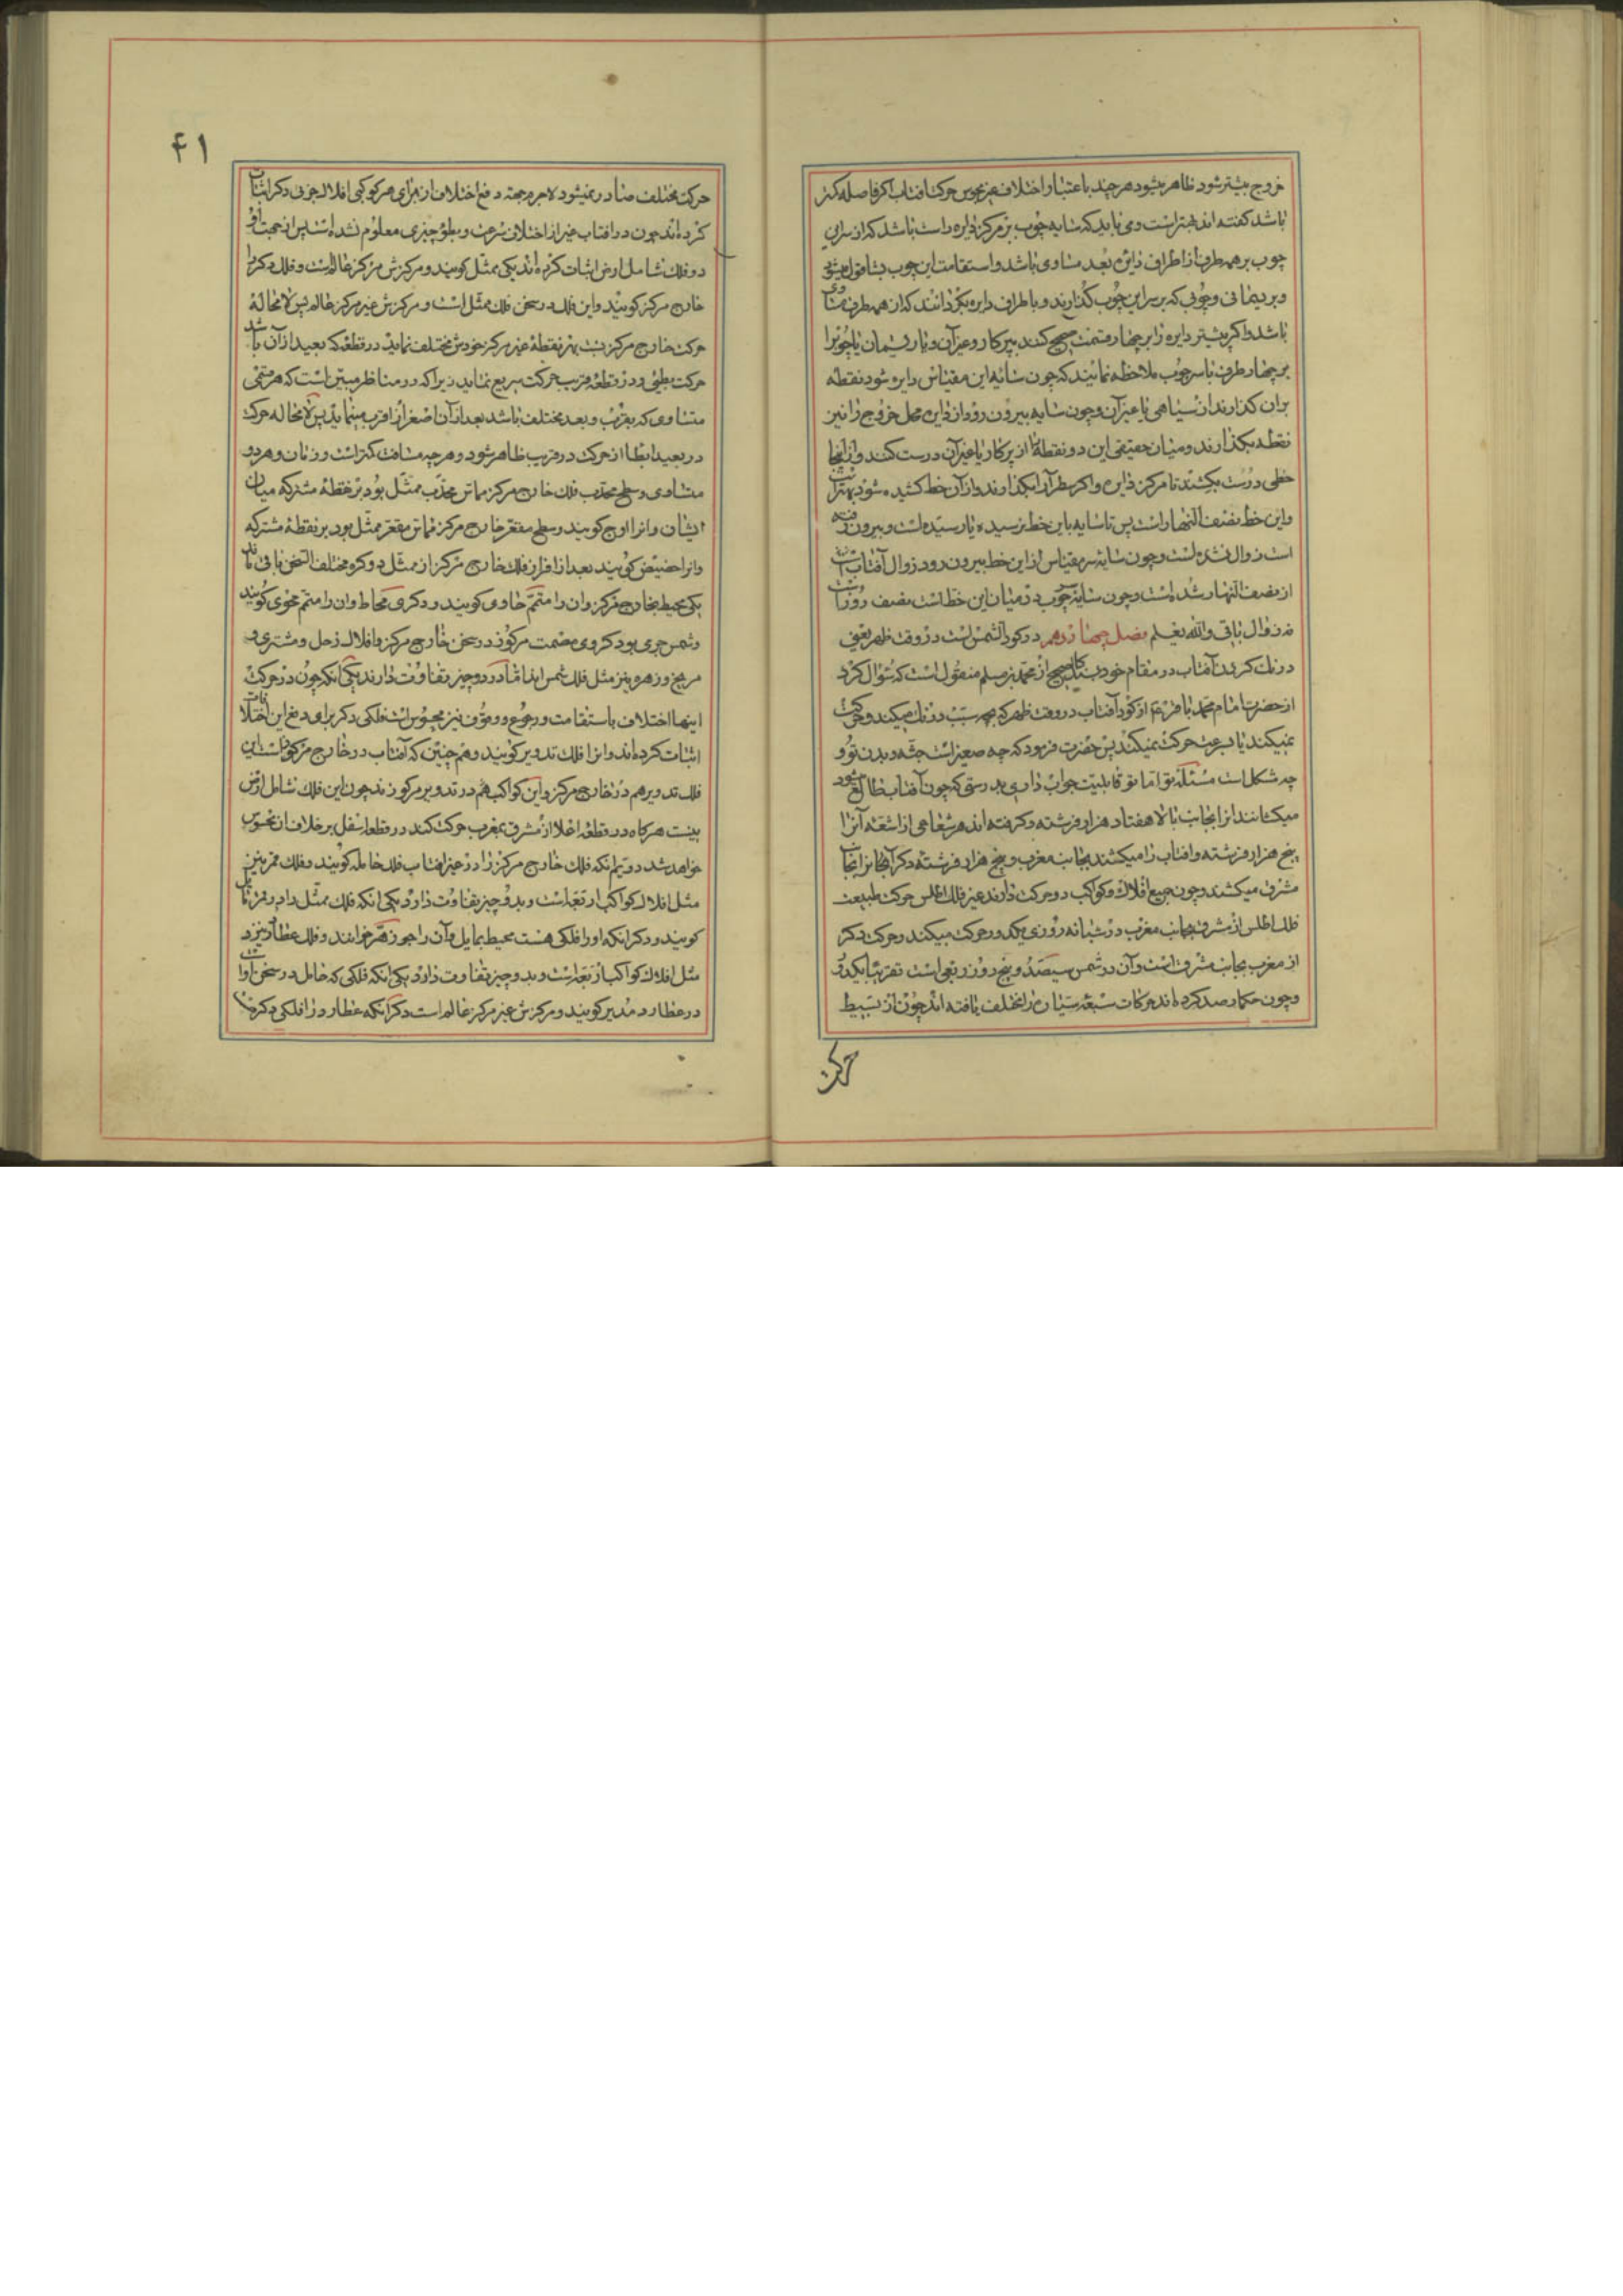 خروج بیشتر شود ظاهر میشود هر چند باعتبار اختلاف غیر محسوس حرکت افتاب اکر فاصله کمتر
باشد کفته اند بهتر است و می باید که سایه چوب بر مرکز دایره راست باشد که از سر این
چوب بر همه طرف از اطراف دایره بعد مساوی باشد و استقامت این چوب بشاقول میشود
و بریسمانی و چوبی که بر سر این چوب کذارند و باطراف دایره بکردانند که از همه طرف مساوی
باشد و اکر پیشتر دایره را بر چهار قسمت صحیح کنند بپرکار و غیر آن و با ریسمان یا چوب را
بر چهار طرف با سر چوب ملاحظه نمایند که چون سایه این مقیاس دایره شود نقطه
بران کذارند از سیاهی یا غیر آن و چون سایه بیرون رود از دایره محل خروج را نیز
نقطه بکذارند و میان حقیقی این دو نقطه را از پرکار یا غیر آن درست کنند و از انجا
خطی درست بکشند تا مرکز دایره و اکر سطر آرا بکذارند و از آن خط کشیده شود بهتر است
و این خط نصف النهار است پس تا سایه باین خط نرسیده یا رسیده است و بیرون نرفته
است زوال نشده است و چون سایه سر مقیاس از این خط بیرون رود زوال آفتاب است
از نصف النهار شده است و چون سایه چوب در میان این خط است نصف روز است
نه زوال باقی والله یعلم فصل چهاردهم در رکود الشمس است در وقت ظهر یعنی
درنك کردن آفتاب در مقام خود بسند کالصحیح از محمد بن مسلم منقول است که سوال کرد
از حضرت امام محمد باقر ع از رکود آفتاب در وقت ظهر که بچه سبب درنك میکند و حرکت
نمیکند یا بسرعت حرکت نمیکند پس حضرت فرمود که چه صغیر است جثه و بدن تو و
چه مشکل است مسئله تو اما تو قابلیت جواب داری بدرستی که چون آفتاب طالع میشود
میکشانند انرا بجانب بالا هفتاد هزار فرشته و کرفته اند هر شعاعی از اشعه آنرا
پنج هزار فرشته و افتاب را میکشند بجانب مغرب و پنج هزار فرشته دیکر آنجا بر انجانب
مشرق میکشند و چون جمیع افلاك و کواکب دو حرکت دارند غیر فلك اطلس حرکت طبیعت
فلك اطلس از مشرق بجانب مغرب در شبانه روزی یکدور حرکت میکند و حرکت دکر
از مغرب بجانب مشرق است و آن در شمس سیصد و پنج روز ربعی است تقریبا یکدور
و چون حکما رصد کرده اند حرکات سبعه سیاره را مختلف یافته اند چون از بسیط
حرکت
۴۱
حرکت مختلف صادر نمیشود لاجرم جهة دفع اختلاف از برای هر کوکبی افلاك جزوی دکر اثبات
کرده اند چون در افتاب غیر از اختلاف سرعت و بطؤ چیزی معلوم نشده است پس از جهت او
دو فلك شامل ارض اثبات کرده اند یکی ممثل کویند و مرکزش مرکز عالم است و فلك دکر را
خارج مرکز کویند و این فلك در سخن فلك ممثل است و مرکزش غیر مرکز عالم پس لا محالة
حرکت خارج مرکز نسبت بهر نقطه غیر مرکز خودش مختلف نماید در قطعه که بعید از آن باشد
حرکت بطئی و در قطعه قریب حرکت سریع نماید زیرا که در مناظر مبین است که هر قسمتی
متساوی که بقرب و بعد مختلف باشد بعد از آن اصغر از اقرب مینماید پس لا محاله حرکت
در بعید ابطا از حرکت در قریب ظاهر شود و هر چه مسافت کمتر است و زمان و هر دو
متساوی و سطح محدب فلك خارج مرکز مماس محدب ممثل بود بر نقطه مشترکه میان
ایشان و انرا اوج کویند و سطح مقعر خارج مرکز مماس مقعر ممثل بود بر نقطه مشترکه
و انرا حضیض کویند بعد از افراز فلك خارج مرکز از ممثل دو کره مختلف الثخن باقی ماند
یکی محیط بخارج مرکز و ان را متمم حاوی کویند و دکری محاط و ان را متمم محوی کویند
و شمس جرمی بود کروی مصمت مرکوز در سخن خارج مرکز و افلاك زحل و مشتری و
مریخ و زهره نیز مثل فلك شمس اند اما در دو چیز تفاوت دارند یکی انکه چون در حرکت
اینها اختلاف باستقامت و رجوع و وقوف نیز محسوس است فلکی دکر برای دفع این اختلافات
اثبات کرده اند و انرا فلك تدویر کویند و هم چنین که آفتاب در خارج مرکوز است این
فلك تدویر هم در خارج مرکز و این کواکب هم در تدویر مرکوزند چون این فلك شامل ارض
نیست هر کاه در قطعه اعلا از مشرق بمغرب حرکت کند در قطعه اسفل بر خلاف ان محسوس
خواهد شد دویم انکه فلك خارج مرکز را در غیر افتاب فلك حامله کویند و فلك قمر نیز
مثل افلاك کواکب اربعه است و بدو چیز تفاوت دارد یکی انکه فلك ممثل دارد و انرا مایل
کویند و دکر انکه او را فلکی هست محیط بمایل و آن را جوزهر خوانند و فلك عطارد نیز
مثل افلاك کواکب اربعه است و بدو چیز تفاوت دارد یکی انکه فلکی که حامل در سخن او است
در عطارد مدیر کویند و مرکزش غیر مرکز عالم است دکر انکه عطارد را فلکی دکر